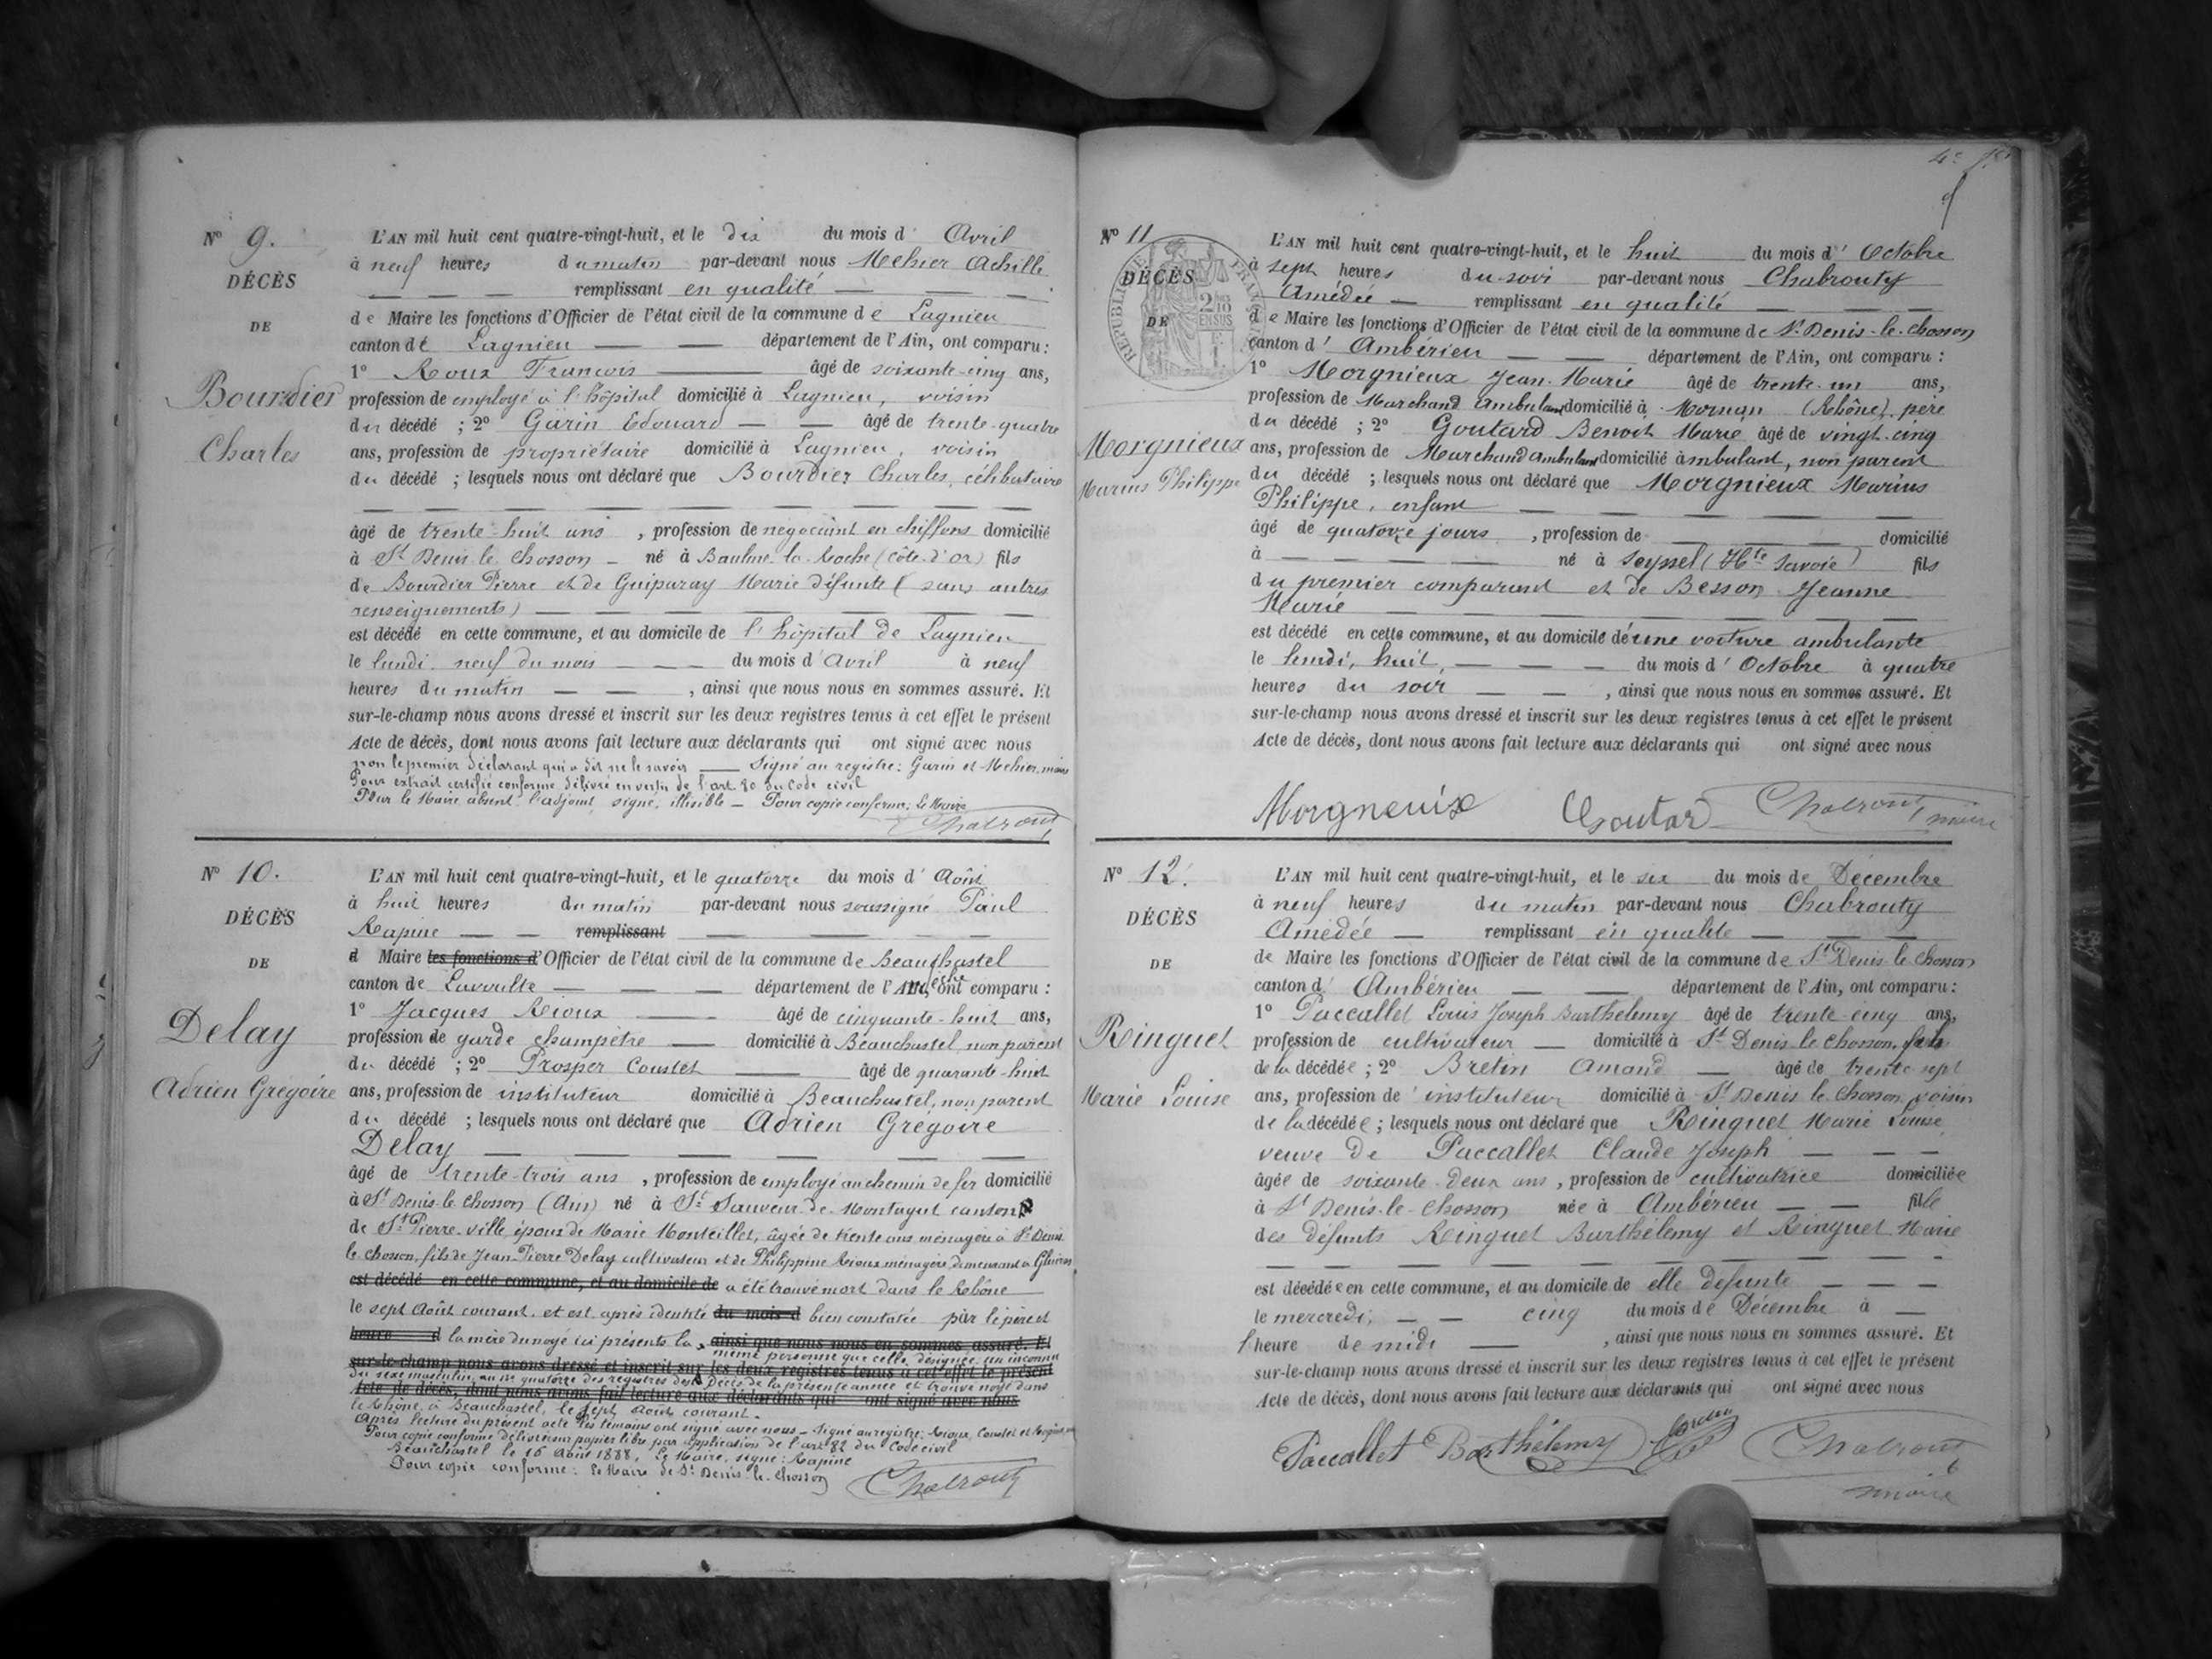 Nº 9.
DÉCÈS
DE
Bourdier
Charles
L'AN mil huit cent quatre-vingt-huit, et le dix du mois d' Avril
à neuf heures du matin par-devant nous Mehier Achille
remplissant en qualité
de Maire les fonctions d'Officier de l'état civil de la commune de Lagnieu
canton de Lagnieu département de l'Ain, ont comparu :
1º Roux François âgé de soixante-cinq ans,
profession de employé à l'hôpital domicilié à Lagnieu, voisin
du décédé ; 2º Garin Edouard âgé de trente-quatre
ans, profession de propriétaire domicilié à Lagnieu, voisin
du décédé ; lesquels nous ont déclaré que Bourdier Charles, célibataire
âgé de trente-huit ans, profession de négociant en chiffons domicilié
à St Denis le Chosson né à Baulme-la-Roche (côte-d'or) fils
de Bourdier Pierre et de Guiparay Marie défunte (sans autres
renseignements)
est décédé en cette commune, et au domicile de l'hôpital de Lagnieu
le lundi neuf du mois du mois d'Avril à neuf
heures du matin, ainsi que nous nous en sommes assuré. Et
sur-le-champ nous avons dressé et inscrit sur les deux registres tenus à cet effet le présent
Acte de décès, dont nous avons fait lecture aux déclarants qui ont signé avec nous
non le premier déclarant qui a dit ne le savoir Signé au registre: Garin et Mehier, maire
Pour extrait certifié conforme délivré en vertu de l'art. 80 du Code civil
Pour le Maire absent l'adjoint, signé, illisible — Pour copie conforme: Le Maire
Chabrouty
Nº 10.
DÉCÈS
DE
Delay
Adrien Grégoire
L'AN mil huit cent quatre-vingt-huit, et le quatorze du mois d' Août
à huit heures du matin par-devant nous soussigné Paul
Rapine remplissant
d Maire les fonctions d'Officier de l'état civil de la commune de Beauchastel
canton de Lavoulte département de l'Ardèche, ont comparu :
1º Jacques Rioux âgé de cinquante-huit ans,
profession de garde champêtre domicilié à Beauchastel, non parent
du décédé ; 2º Prosper Coustet âgé de quarante-huit
ans, profession de instituteur domicilié à Beauchastel, non parent
du décédé ; lesquels nous ont déclaré que Adrien Grégoire
Delay
âgé de trente-trois ans, profession de employé au chemin de fer domicilié
à St Denis-le-Chosson (Ain) né à St Sauveur-de-Montagut canton
de St Pierre-ville, époux de Marie Monteillet, âgée de trente ans ménagère à St Denis
le Chosson, fils de Jean-Pierre Delay cultivateur et de Philippine Rioux ménagère demeurant à Gluiras
est décédé en cette commune, et au domicile de a été trouvé mort dans le Rhône
le sept Août courant, et est après identité du mois d bien constatée par le père et
heure d la mère du noyé ici présents la, ainsi que nous nous en sommes assuré. Et
même personne que celle, désignée, un inconnu
sur-le-champ nous avons dressé et inscrit sur les deux registres tenus à cet effet le présent
du sexe masculin, au nº quatorze des registres des Décès de la présente année et trouvé noyé dans
Acte de décès, dont nous avons fait lecture aux déclarants qui ont signé avec nous
le Rhône, à Beauchastel, le sept Août courant.
Après lecture du présent acte les témoins ont signé avec nous — Signé au registre: Rioux, Coustet et Rapine
Pour copie conforme délivrée sur papier libre par application de l'art. 82 du Code civil
Beauchastel le 16 Août 1888, Le Maire, signé: Rapine
Pour copie conforme: Le Maire de St Denis-le-Chosson
Chabrouty
Nº 11
DÉCÈS
DE
Morgnieux
Marius Philippe
L'AN mil huit cent quatre-vingt-huit, et le huit du mois d' Octobre
à sept heures du soir par-devant nous Chabrouty
Amédée remplissant en qualité
de Maire les fonctions d'Officier de l'état civil de la commune de St Denis-le-Chosson
canton d' Ambérieu département de l'Ain, ont comparu :
1º Morgnieux Jean-Marie âgé de trente-un ans,
profession de Marchand Ambulant domicilié à Mornan (Rhône), père
du décédé ; 2º Goutard Benoit Marie âgé de vingt-cinq
ans, profession de Marchand Ambulant domicilié ambulant, non parent
du décédé ; lesquels nous ont déclaré que Morgnieux Marius
Philippe, enfant
âgé de quatorze jours, profession de domicilié
à né à Seyssel (Hte Savoie) fils
du premier comparant et de Besson Jeanne
Marie
est décédé en cette commune, et au domicile d'une voiture ambulante
le lundi, huit, du mois d' Octobre à quatre
heures du soir, ainsi que nous nous en sommes assuré. Et
sur-le-champ nous avons dressé et inscrit sur les deux registres tenus à cet effet le présent
Acte de décès, dont nous avons fait lecture aux déclarants qui ont signé avec nous
Morgneuix Goutar Chabrouty maire
Nº 12.
DÉCÈS
DE
Ringuet
Marie Louise
L'AN mil huit cent quatre-vingt-huit, et le six du mois de Décembre
à neuf heures du matin par-devant nous Chabrouty
Amédée remplissant en qualité
de Maire les fonctions d'Officier de l'état civil de la commune de St Denis le Chosson
canton d' Ambérieu département de l'Ain, ont comparu :
1º Paccallet Louis Joseph Barthélemy âgé de trente-cinq ans,
profession de cultivateur domicilié à St Denis-le-Chosson, fils
de la décédée ; 2º Bretin Amand âgé de trente sept
ans, profession de instituteur domicilié à St Denis le Chosson, voisin
de la décédée ; lesquels nous ont déclaré que Ringuet Marie Louise
veuve de Paccallet Claude Joseph
âgée de soixante-deux ans, profession de cultivatrice domiciliée
à St Denis-le-Chosson née à Ambérieu fille
des défunts Ringuet Barthélemy et Ringuet Marie
est décédée en cette commune, et au domicile de elle défunte
le mercredi, cinq du mois de Décembre à
l'heure de midi, ainsi que nous nous en sommes assuré. Et
sur-le-champ nous avons dressé et inscrit sur les deux registres tenus à cet effet le présent
Acte de décès, dont nous avons fait lecture aux déclarants qui ont signé avec nous
Paccallet Barthélemy Chabrouty
maire